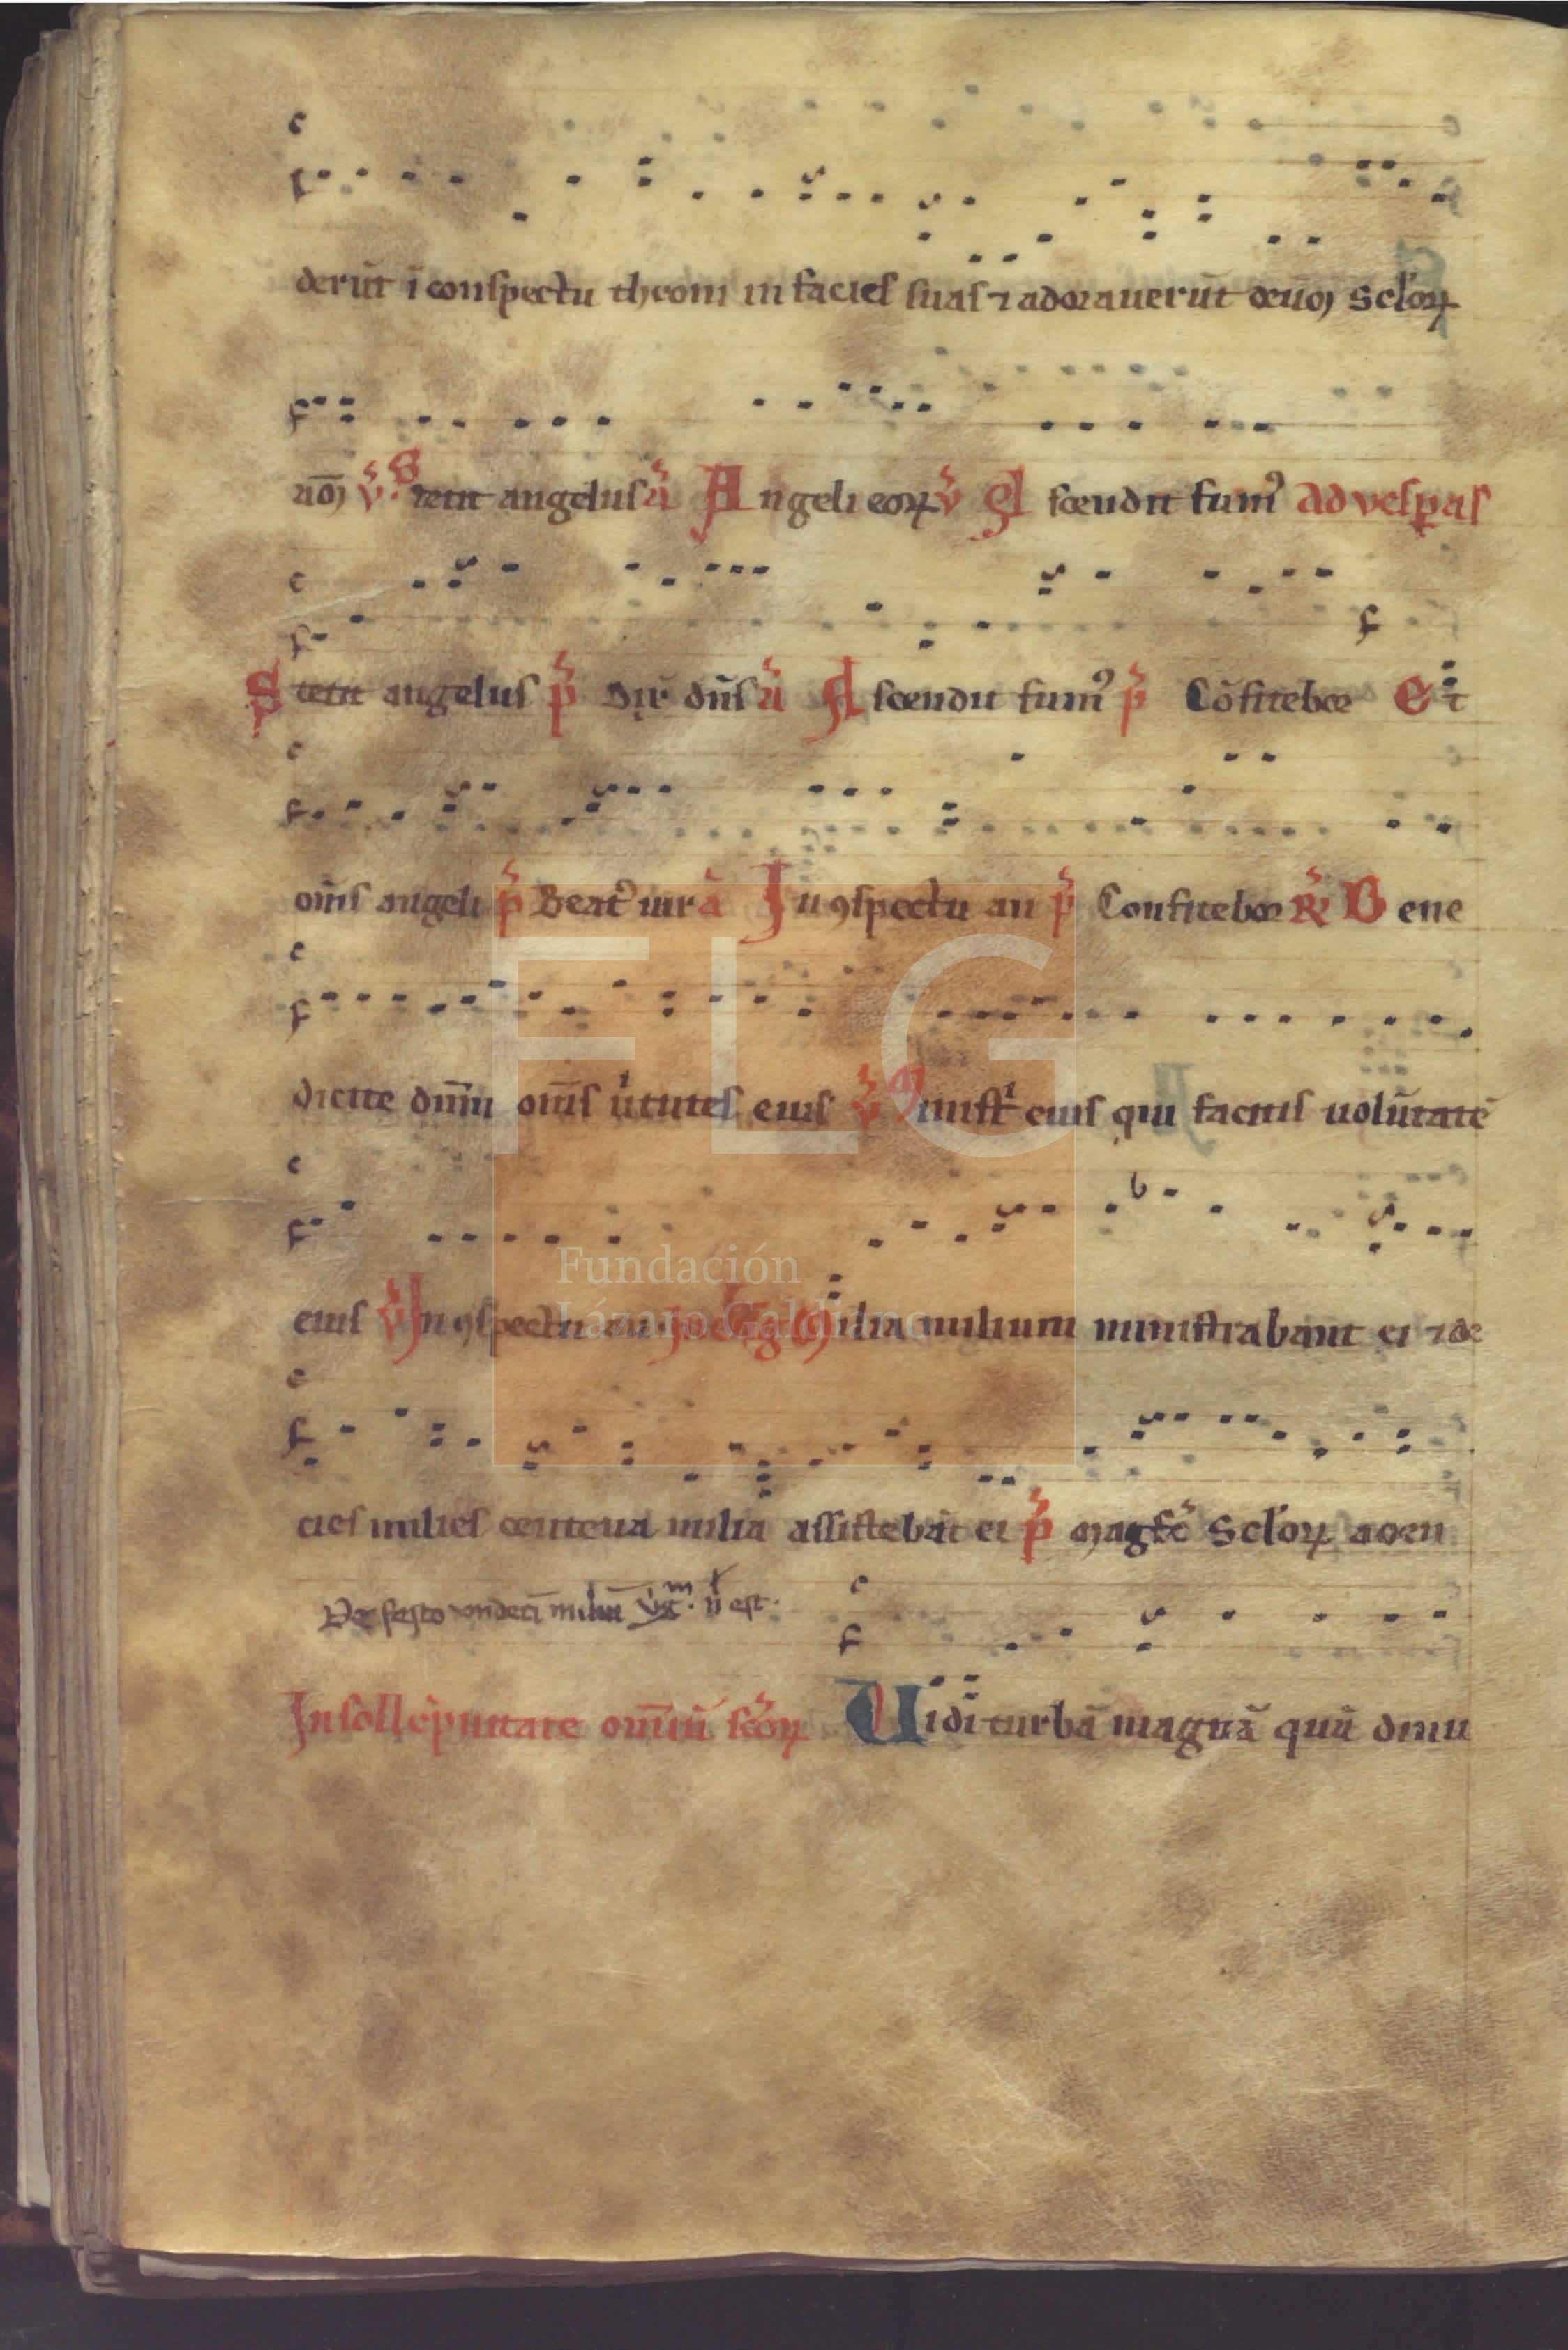 derūt ī conspectu throni in facies suas ⁊ adorauerūt deuꝫ Sc̄loꝝ
am̄ v̄ Stetit angelus ā Angeli eoꝝ v̄ Ascendit fumꝰ ad vesꝑas
Stetit angelus p̄ Dix̄ dn̄s ā Ascendit fumꝰ p̄ Cōfitebor Et
om̄s angeli p̄ Beatꝰ uir ā In ꝯspectu an p̄ Confitebor ℞ Bene
dicite dn̄m om̄s uͥtutes eius v̄ Ministͥ eius qui facitis uolūtatē
eius v̄ In ꝯspectu an Milia milium ministrabant ei ⁊ de
cies milies centena milia assistebāt ei p̄ magᷤc̄ Sc̄loꝝ amen
De festo vndecī miliū v̄gᵐ. ijˡ est.
In sollēpnitate om̄iū sc̄oꝝ Uidi turbā magnā quā dinu
FLG
Fundación
Lázaro Galdiano